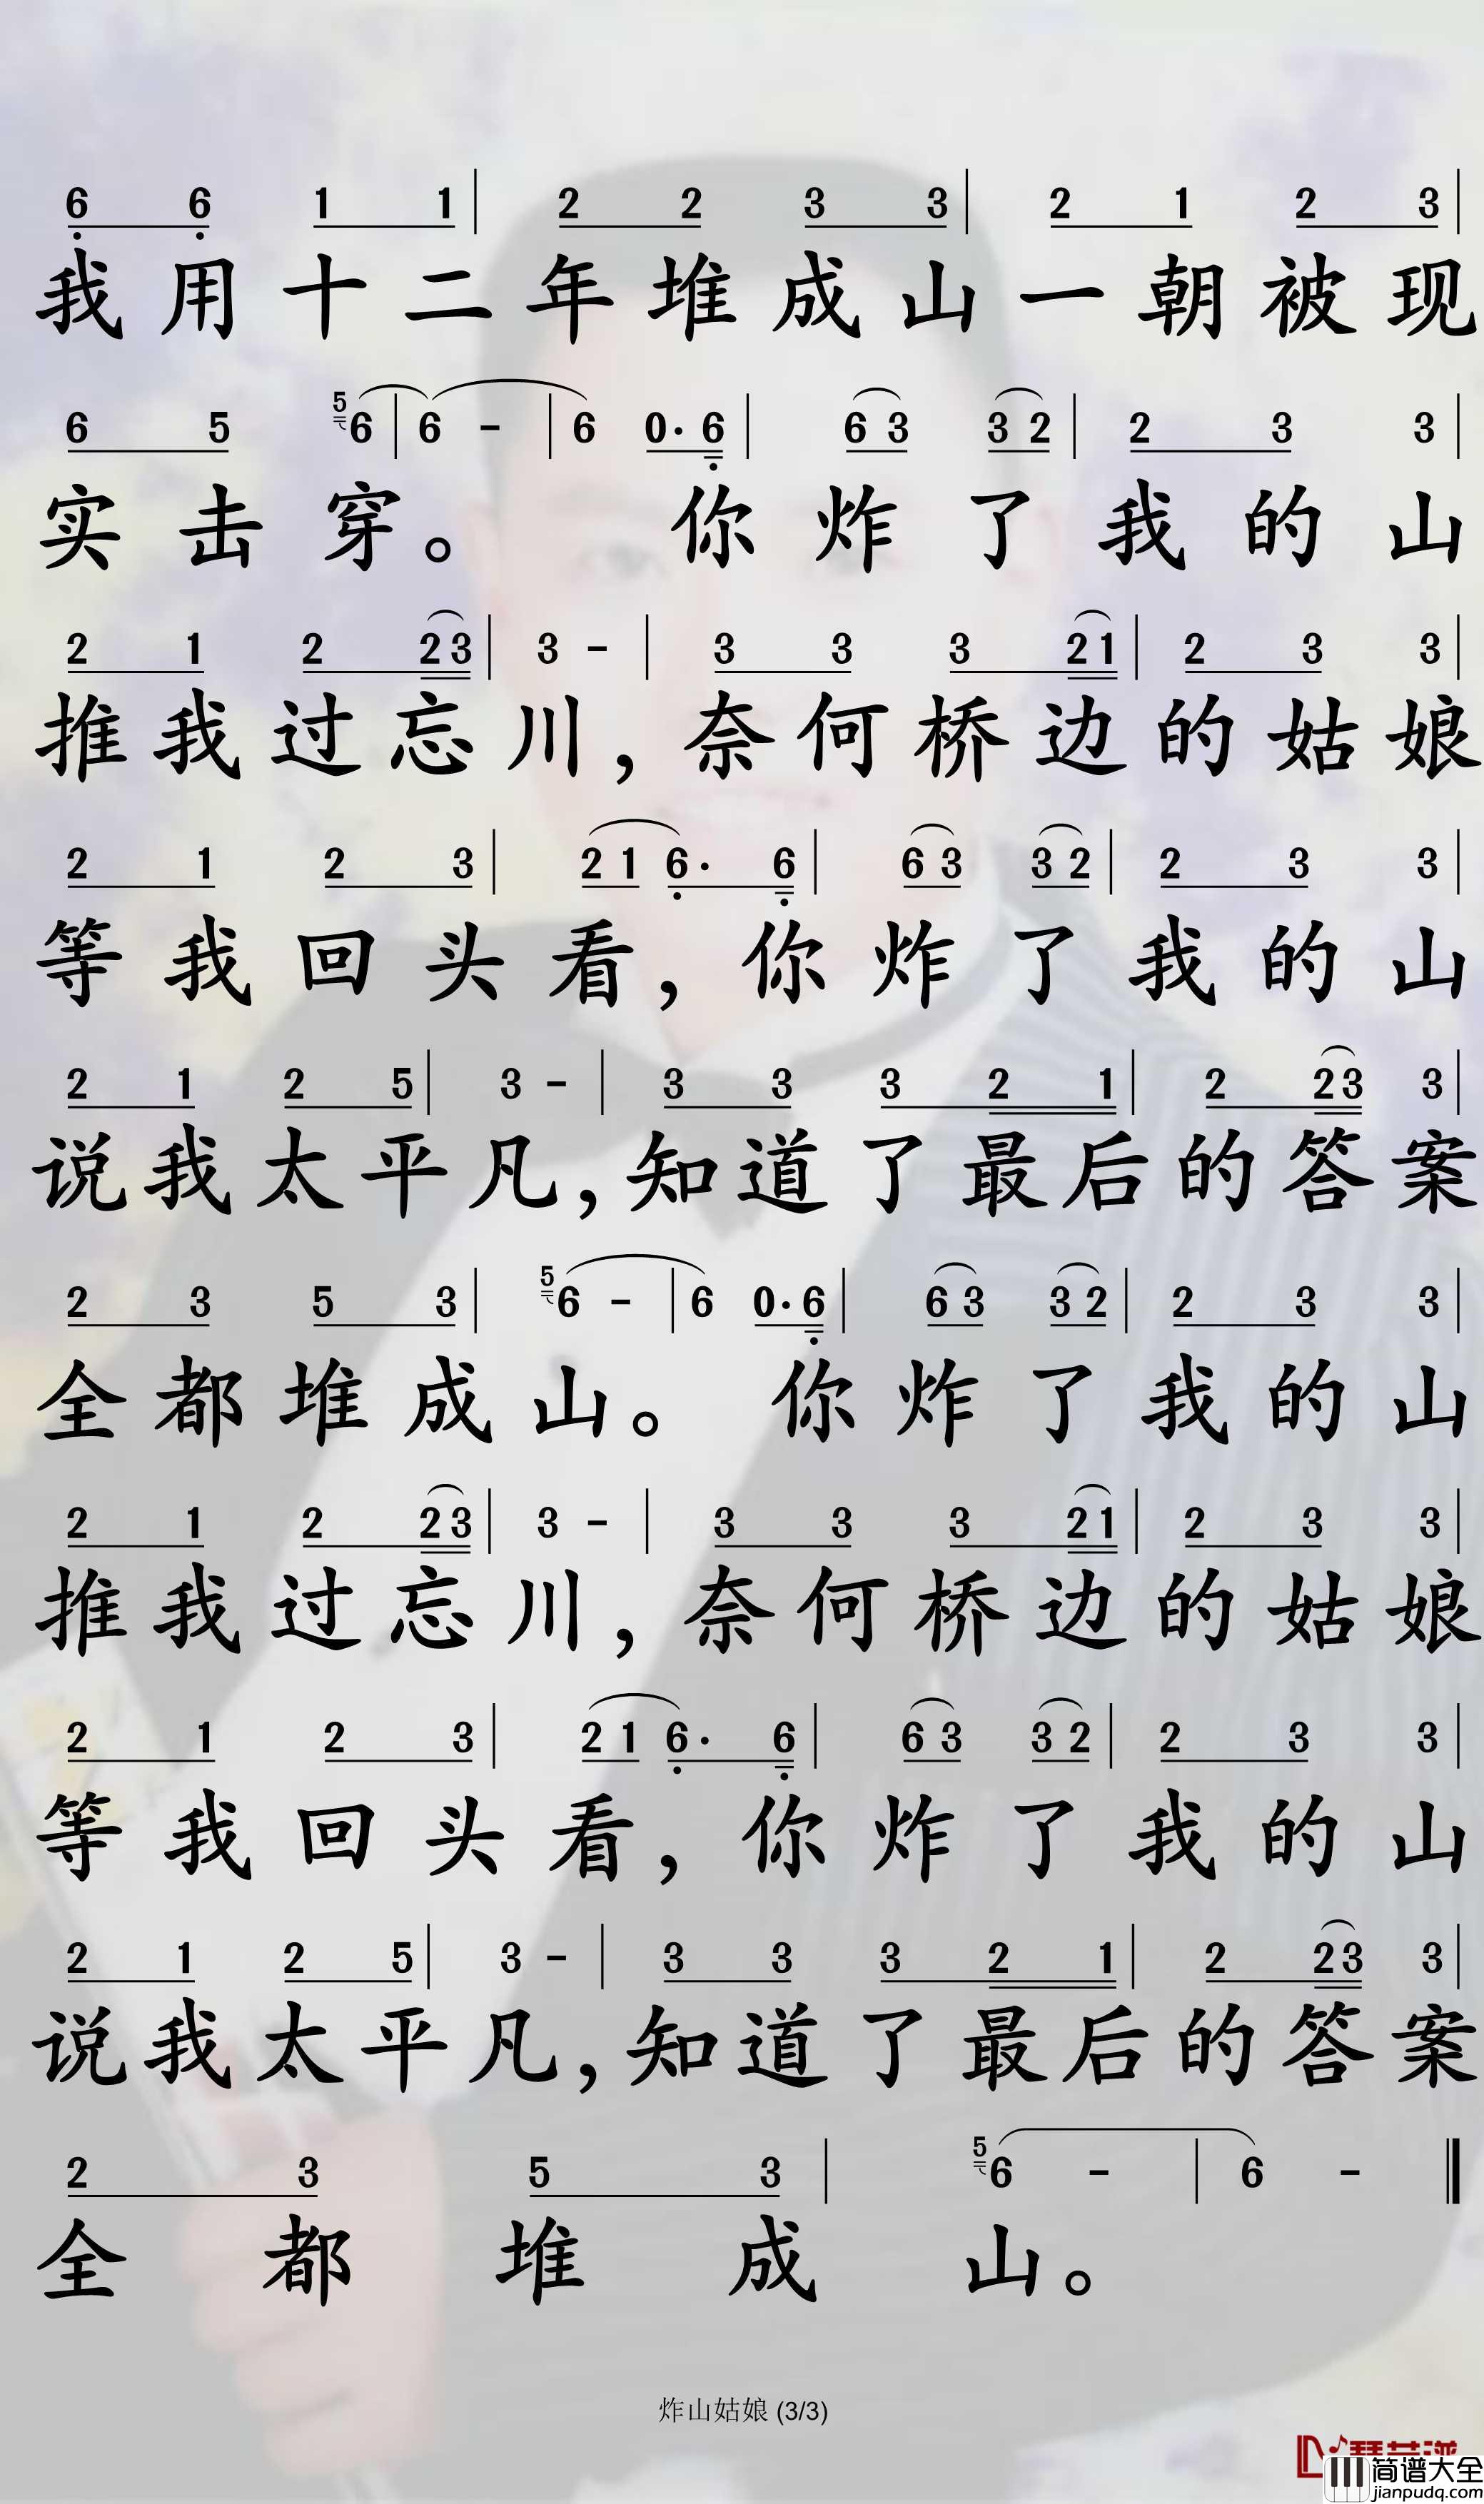 6 6 1 1 | 2 2 3 3 | 2 1 2 3 |
我用十二年堆成山一朝被现
6 5 5 6 | 6 - | 6 0· 6 | 6 3 3 2 | 2 3 3 |
实击穿。 你炸了我的山
2 1 2 2 3 | 3 - | 3 3 3 2 1 | 2 3 3 |
推我过忘川，奈何桥边的姑娘
2 1 2 3 | 2 1 6· 6 | 6 3 3 2 | 2 3 3 |
等我回头看，你炸了我的山
2 1 2 5 | 3 - | 3 3 3 2 1 | 2 2 3 3 |
说我太平凡，知道了最后的答案
2 3 5 3 | 5 6 - | 6 0· 6 | 6 3 3 2 | 2 3 3 |
全都堆成山。 你炸了我的山
2 1 2 2 3 | 3 - | 3 3 3 2 1 | 2 3 3 |
推我过忘川，奈何桥边的姑娘
2 1 2 3 | 2 1 6· 6 | 6 3 3 2 | 2 3 3 |
等我回头看，你炸了我的山
2 1 2 5 | 3 - | 3 3 3 2 1 | 2 2 3 3 |
说我太平凡，知道了最后的答案
2 3 5 3 | 5 6 - | 6 -
全都堆成山。
炸山姑娘 (3/3)
简谱大全
jianpudq.com